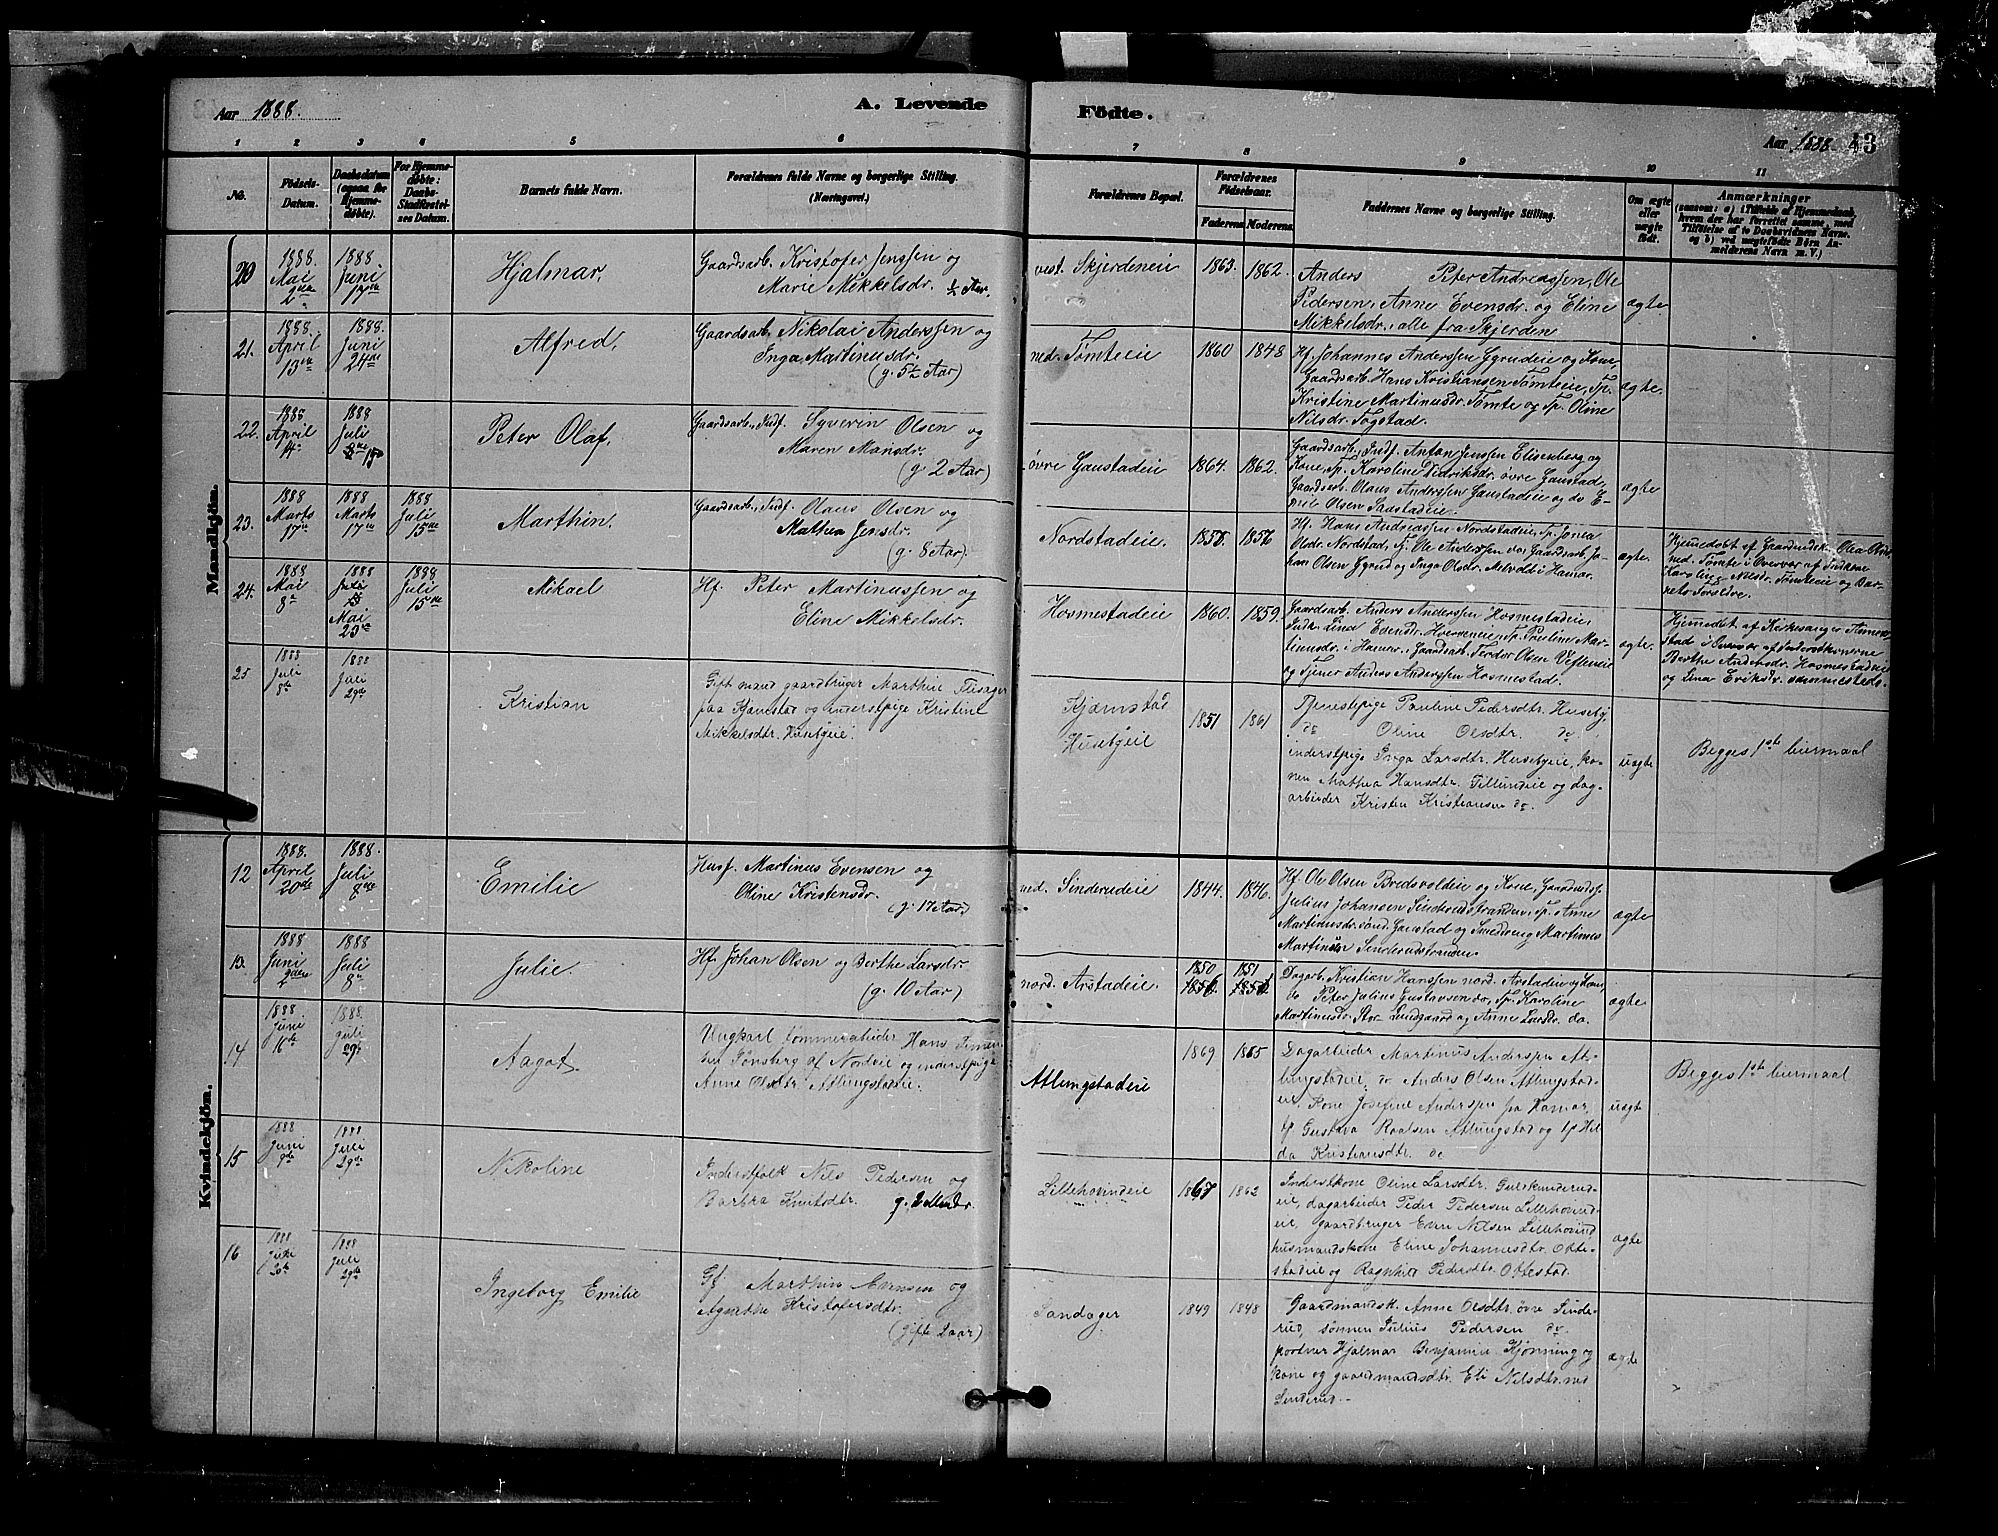 Aar 1888.
A. Levende
Födte.
Aar 1888. 43
1 2 3 4 5 6
7 8 9 10 11
No.
Födsels-
Datum.
Daabsdatum
(ogsaa for
Hjemme-
døbte).
For Hjemme-
døbte:
Daabs-
Stadfæstel-
ses Datum.
Barnets fulde Navn.
Forældrenes fulde Navne og borgerlige Stilling.
(Næringsvei.)
Forældrenes Bopæl.
Forældrenes
Födselsaar.
Faderens. Moderens.
Faddernes Navne og borgerlige Stilling.
Om ægte
eller
uægte
født.
Anmærkninger
Mandkjön.
20
1888.
Mai
2den
1888
Juni
17de
Hjalmar.
Gaardsarb. Kristofer Jenssen og
Marie Mikkelsdr. ½ Aar.
vest. Skjerdeneie
1863. 1862.
Anders Peter Andreassen, Ole
Pedersen, Anne Evensdr. og Eline
Mikkelsdr., alle fra Skjerden
ægte
21.
1888.
April
13de
1888.
Juni
24de
Alfred.
Gaardsarb. Nikolai Anderssen og
Inga Martinusdr.
(g. 5½ Aar)
ned. Tømteeie
1860 1848
Hf. Johannes Anderssen Ggrudeie og Kone,
Gaardsarb. Hans Kristiansen Tømteeie, Tp.
Kristine Martinusdr. Tømte og Tp. Oline
Nilsdr. Togstad.
ægte.
22.
1888
April
14de
1888
Juli
15
Peter Olaf.
Gaardsarb., Indf. Syverin Olsen og
Maren Mansdr.
(g. 2 Aar)
øvre Gaustadeie
1864. 1862.
Gaardsarb., Indf. Anton Jenssen Elisenberg og
Kone, Tp. Karoline Didriksdr. øvre Gaustad,
Gaardsarb. Olaus Anderssen Gaustadeie og do E-
mil Olsen Saustadeie.
ægte
23.
1888
Marts
17de
1888
Marts
17de
1888
Juli
15de
Marthin.
Gaardsarb., Indf. Olaus Olsen og
Mathea Jensdr.
(g. 8 Aar)
Nordstadeie.
1856
Hf. Hans Andreassen Nordstadeie, Tp. Jonea
Olsdr. Nordstad, Tj. Ole Anderssen do, Gaardsarb. Jo-
han Olsen Ggrud og Inga Olsdr. i Hamar.
ægte.
Hjemedøbt af Olea Olsdr.
ned. Tømte i Overvær af
Karoline Nilsdr. Tømteeie og Bar-
nets Forældre.
24.
1888
Mai
8de
1888
Mai
23de
1888
Juli
15de
Mikael
Hf. Peter Martinussen og
Eline Mikkelsdr.
Hosmestadeie
1860. 1859.
Gaardsarb. Anders Anderssen Hosmestadeie,
Indk. Lina Evensdr. Tp. Pauline Mar-
tinusdr. i Hamar, Gaardsarb. Teodor Olsen
og Tjener Anders Anderssen Hosmestad.
ægte.
Hjemedøbt af Kirkesanger
stad i Overvær af
Berthe Andersdr. Hosmestadeie
og Lina Eriksdr. sammesteds.
25
1888
Juli
8de
1888
Juli
29de
Kristian
Gift mand gaardbruger Marthin Flisager
paa Kjæmstad og inderstpige Kristine
Mikkelsdtr. Husebyeie.
Kjæmstad
Husebyeie
1851 1861
Tjenestepige Pauline Pedersdtr. Huseby,
do Oline Olsdtr. do,
inderstpige Inga Larsdtr. Husebyeie, ko-
nen Mathea Hansdtr. Tillundeie og dag-
arbeider Kristen Kristiansen do.
uægte
Begges 1ste leiermaal
Kvindekjön.
12
1888.
April
20de
1888.
Juli
8de
Emilie
Husf. Martinus Evensen og
Oline Kristensdr.
(g. 17 Aar.)
ned. Sinderudeie
1844. 1846.
Hf. Ole Olsen Bredsvoldeie og Kone,
Julius Johansen Sinderudstranden, Tp. Anne
Martinusdr. sønd. Gaustad og Martinus
Martinsen Sinderudstranden.
ægte
13.
1888
Juni
2den
1888
Juli
8de
Julie.
Hf. Johan Olsen og Berthe Larsdr.
(g. 10 Aar)
nord. Arstadeie.
1850 1851
Dagarb. Kristian Hanssen nord. Arstadeie og Kone,
do Peter Julius Gustavsen do, Tp. Karoline
Martinusdr. Stor Lundgaard og Anne Larsdr. do.
ægte
14
1888
Juni
16de
1888.
Juli
29de
Aagot.
Ungkarl tømmerarbeider Hans
Tønsberg af Nordvi og inderstpige
Anne Olsdtr. Atlungstadeie.
Atlungstadeie
1869 1865
Dagarbeider Martinus Anderssen At-
lungstadeie, do Anders Olsen Atlungstad-
eie, Kone Josefine Anderssen fra Hamar,
tp. Gustava Roalsen Atlungstad og tp. Hil-
da Kristiansdtr. do
uægte
Begges 1ste leiermaal
15
1888
Juni
9de
1888
Juli
29de
Nikoline
Inderstfolk Nils Pedersen og
Barbra Knutsdtr.
Lillehovindeie
1862
Inderstkone Oline Larsdtr. Gulskunderud-
eie, dagarbeider Peder Pedersen Lillehovind-
eie, gaardbruger Even Nilsen Lillehovind
husmandskone Eline Johannesdtr. Otte-
stadeie og Ragnhild Pedersdtr. Ottestad.
ægte
16
1888
20de
1888
Juli
29de
Ingeborg Emilie
Gf. Marthin Evensen og
Agnethe Kristofersdtr.
(gifte 2 aar)
Sandager
1849 1848
Gaardmandsk. Anne Olsdtr. øvre Sinde-
rud, sønnen Julius Pedersen do.
portner Hjalmar Benjamin Hjønning og
kone og gaardmandsdtr. Eli Nilsdtr. ned
Sinderud.
ægte